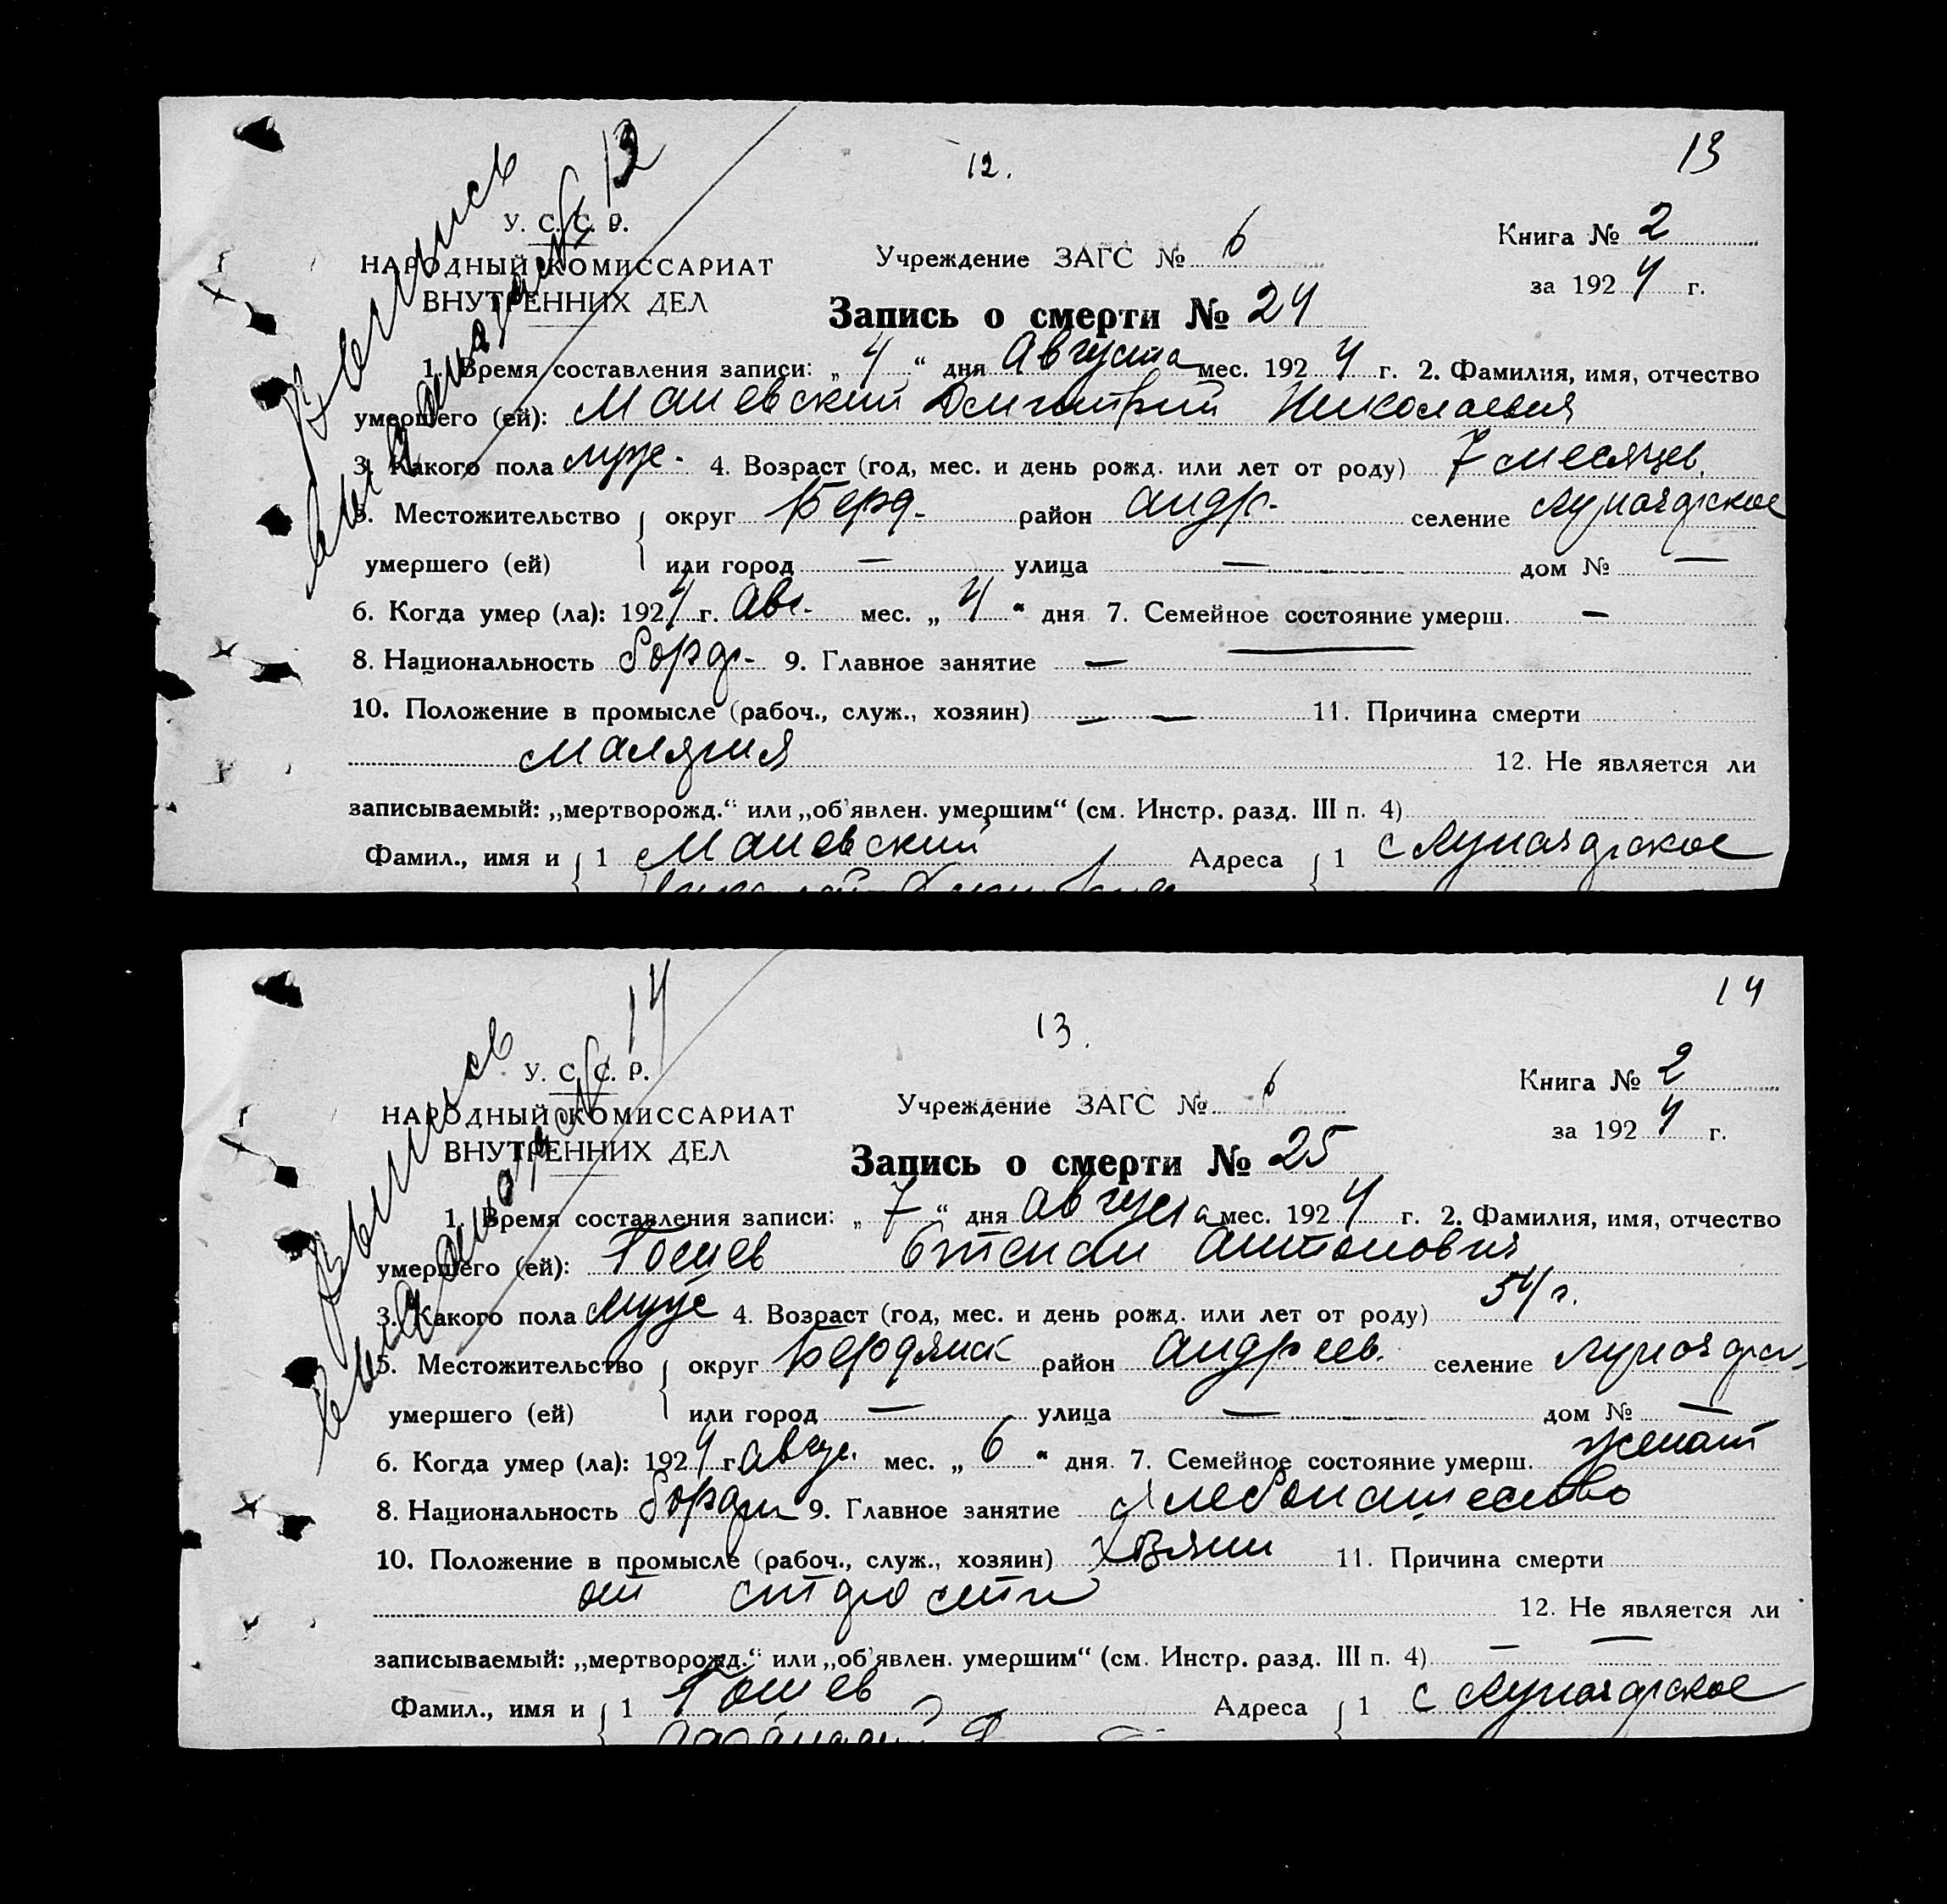 12.
13
Выпись
выдана за № 13
У. С. С. Р.
НАРОДНЫЙ КОМИССАРИАТ
ВНУТРЕННИХ ДЕЛ
Учреждение ЗАГС № 6
Книга № 2
за 1924 г.
Запись о смерти № 24
1. Время составления записи: „ 4 “ дня Августа мес. 1924 г. 2. Фамилия, имя, отчество
умершего (ей): Маневский Дмитрий Николаевич
3. Какого пола муж. 4. Возраст (год, мес. и день рожд. или лет от роду) 7 месяцев.
5. Местожительство округ Берд. район Андр. селение
умершего (ей) или город — улица — дом № —
6. Когда умер (ла): 1924 г. Авг. мес. „ 4 “ дня 7. Семейное состояние умерш. —
8. Национальность 9. Главное занятие —
10. Положение в промысле (рабоч., служ., хозяин) — — 11. Причина смерти
малярия 12. Не является ли
записываемый: „мертворожд.“ или „об'явлен. умершим“ (см. Инстр. разд. III п. 4)
Фамил., имя и 1 Маневский Адреса 1 с
14
13.
Выпись
выдана № 14
У. С. С. Р.
НАРОДНЫЙ КОМИССАРИАТ
ВНУТРЕННИХ ДЕЛ
Учреждение ЗАГС № 6
Книга № 2
за 1924 г.
Запись о смерти № 25
1. Время составления записи: „ 7 “ дня Августа мес. 1924 г. 2. Фамилия, имя, отчество
умершего (ей): Степан Антонович
3. Какого пола муж 4. Возраст (год, мес. и день рожд. или лет от роду) 54 г.
5. Местожительство округ Бердянск район Андреев. селение
умершего (ей) или город — улица — дом № —
6. Когда умер (ла): 1924 г. авгус. мес. „ 6 “ дня 7. Семейное состояние умерш. женат
8. Национальность 9. Главное занятие хлебопашество
10. Положение в промысле (рабоч., служ., хозяин) хозяин 11. Причина смерти
от старости 12. Не является ли
записываемый: „мертворожд.“ или „об'явлен. умершим“ (см. Инстр. разд. III п. 4) — —
Фамил., имя и 1 Адреса 1 с